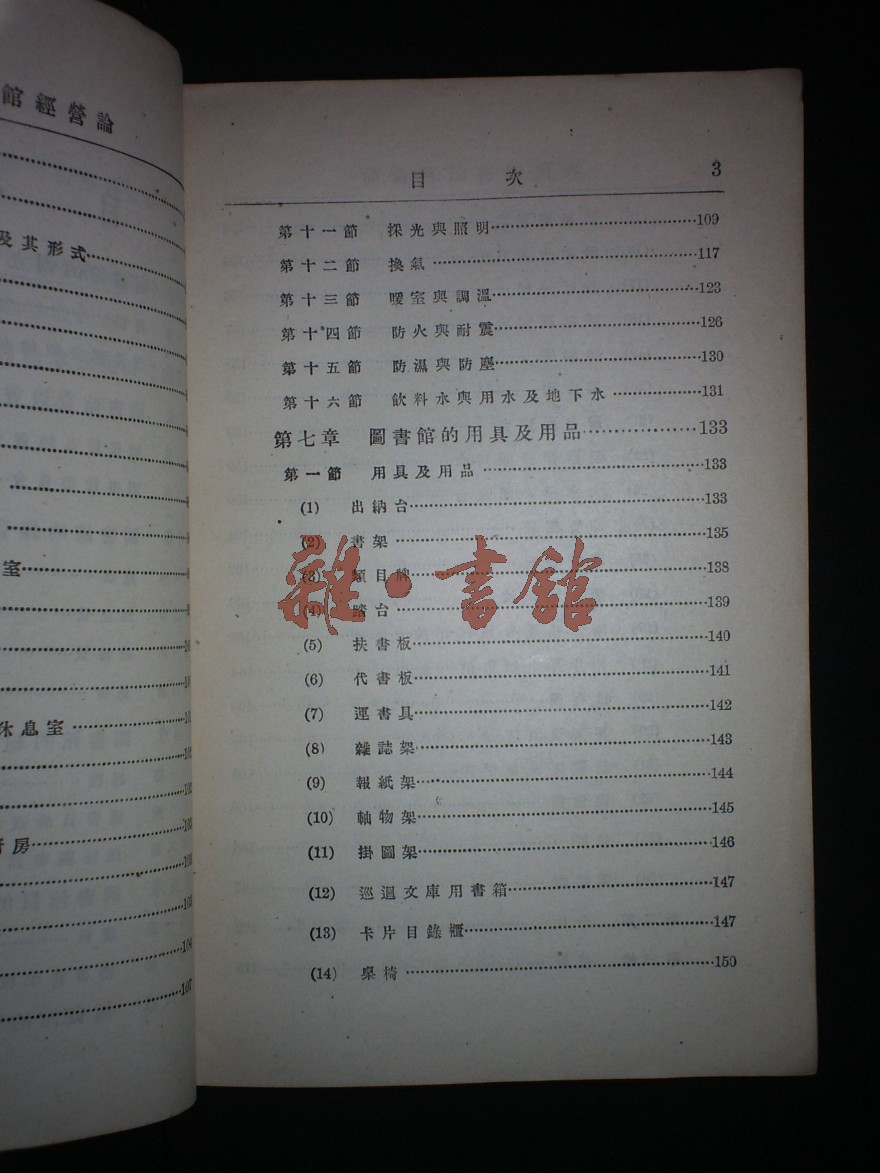 館經營論
及其形式
室
休息室
房
104
107
目 次 3
第十一節 採光與照明 109
第十二節 換氣 117
第十三節 暖室與調溫 123
第十四節 防火與耐震 126
第十五節 防濕與防塵 130
第十六節 飲料水與用水及地下水 131
第七章 圖書館的用具及用品 133
第一節 用具及用品 133
(1) 出納台 133
(2) 書架 135
(3) 類目牌 138
(4) 踏台 139
(5) 扶書板 140
(6) 代書板 141
(7) 運書具 142
(8) 雜誌架 143
(9) 報紙架 144
(10) 軸物架 145
(11) 掛圖架 146
(12) 巡迴文庫用書箱 147
(13) 卡片目錄櫃 147
(14) 桌椅 150
雜·書館